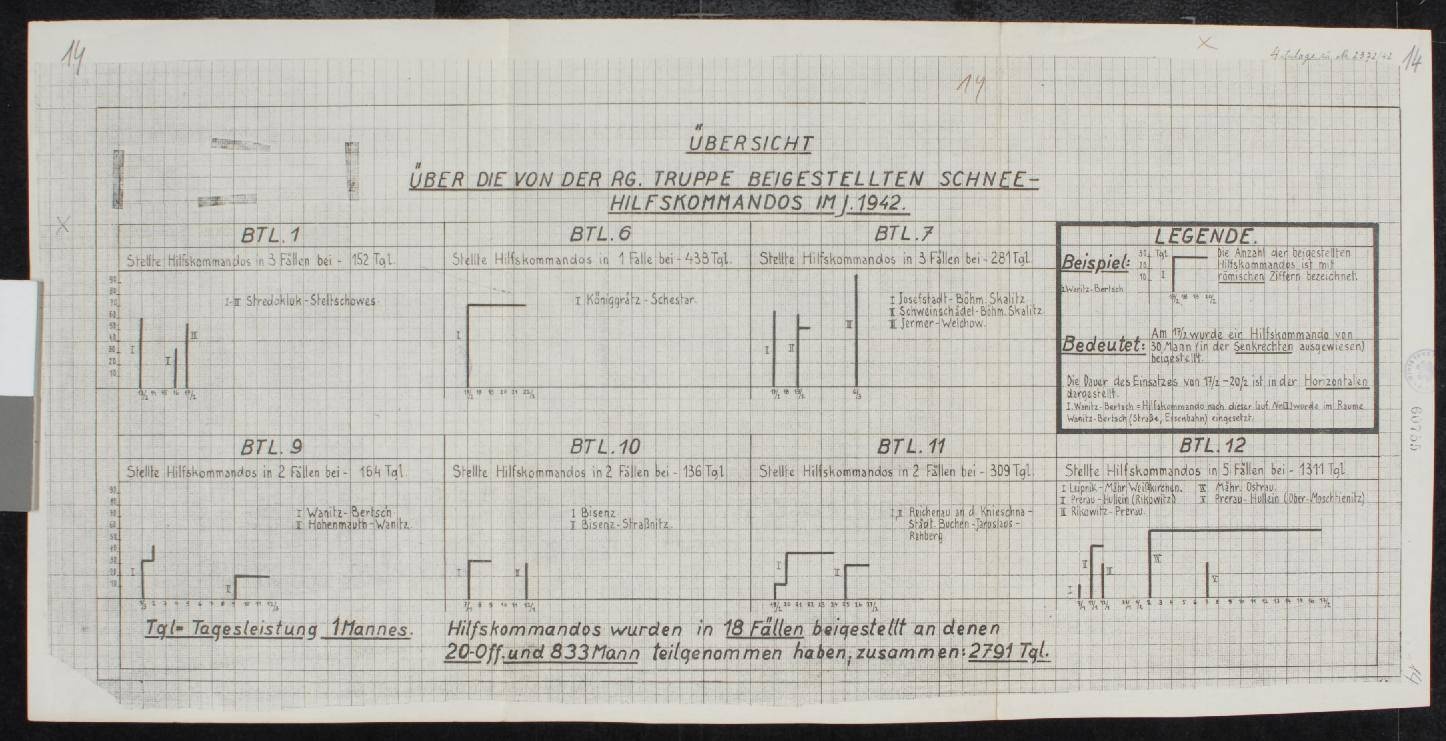 14
14
14
ÜBERSICHT
ÜBER DIE VON DER RG. TRUPPE BEIGESTELLTEN SCHNEE-
HILFSKOMMANDOS IM J. 1942.
BTL. 1
Stellte Hilfskommandos in 3 Fällen bei - 152 Tgl.
I-III Stredokluk-Steltschowes
BTL. 6
Stellte Hilfskommandos in 1 Falle bei - 438 Tgl.
I Königgrätz - Schestar.
BTL. 7
Stellte Hilfskommandos in 3 Fällen bei - 281 Tgl.
I Josefstadt - Böhm. Skalitz
II Schweinschädel - Böhm. Skalitz
III Jermer - Welchow.
LEGENDE.
Beispiel:
Tgl.
I
Die Anzahl der beigestellten
Hilfskommandos ist mit
römischen Ziffern bezeichnet.
I.Wanitz-Bertsch
Bedeutet:
Am 17/2 wurde ein Hilfskommando von
30 Mann (in der Senkrechten ausgewiesen)
beigestellt.
Die Dauer des Einsatzes von 17/2 - 20/2 ist in der Horizontalen
dargestellt.
I. Wanitz-Bertsch = Hilfskommando nach dieser lauf. wurde im Raume
Wanitz-Bertsch (Straße, Eisenbahn) eingesetzt.
BTL. 9
Stellte Hilfskommandos in 2 Fällen bei - 164 Tgl.
I Wanitz - Bertsch
II Hohenmauth - Wanitz.
BTL. 10
Stellte Hilfskommandos in 2 Fällen bei - 136 Tgl.
I Bisenz
II Bisenz - Straßnitz.
BTL. 11
Stellte Hilfskommandos in 2 Fällen bei - 309 Tgl.
I, II Reichenau an d. Knieschna -
Städt. Buchen - Jaroslaus -
Rehberg
BTL. 12
Stellte Hilfskommandos in 5 Fällen bei - 1311 Tgl.
I Leipnik - Mähr. Weißkirchen.
II Prerau - Hullein (Rikowitz)
III Rikowitz - Prerau.
IV Mähr. Ostrau.
V Prerau - Hullein (Ober-Moschtienitz)
Tgl = Tagesleistung 1 Mannes.
Hilfskommandos wurden in 18 Fällen beigestellt an denen
20-Off. und 833 Mann teilgenommen haben, zusammen: 2791 Tgl.
14